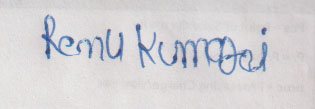 Renu Kumari